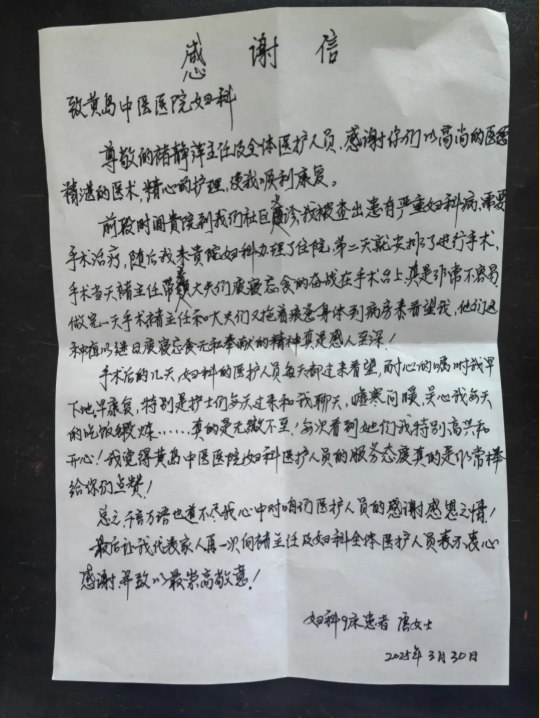 感谢信
致黄岛中医医院妇科
尊敬的褚静萍主任及全体医护人员、感谢你们以高尚的医德
精湛的医术,精心的护理,使我顺利康复。
前段时间贵院到我们社区义诊,我被查出患有严重妇科病,需要
手术治疗,随后我来贵院妇科办理了住院,第二天就安排了进行手术,
手术当天褚主任带领大夫们废寝忘食的奋战在手术台上,真是非常不容易
做完一天手术褚主任和大夫们又拖着疲惫身体到病房来看望我,他们这
种夜以继日废寝忘食无私奉献的精神真是感人至深!
手术后的几天,妇科的医护人员每天都过来看望,耐心的嘱咐我早
下地早康复,特别是护士们每天过来和我聊天,嘘寒问暖,关心我每天
的吃饭锻炼……真的是无微不至!每次看到她们我特别高兴和
开心!我觉得黄岛中医医院妇科医护人员的服务态度真的是非常棒
给你们点赞!
总之,千言万语也道不尽我心中对咱们医护人员的感谢感恩之情!
最后让我代表家人再一次向褚主任及妇科全体医护人员表示衷心
感谢,并致以最崇高敬意!
妇科9床患者 唐女士
2025年3月30日